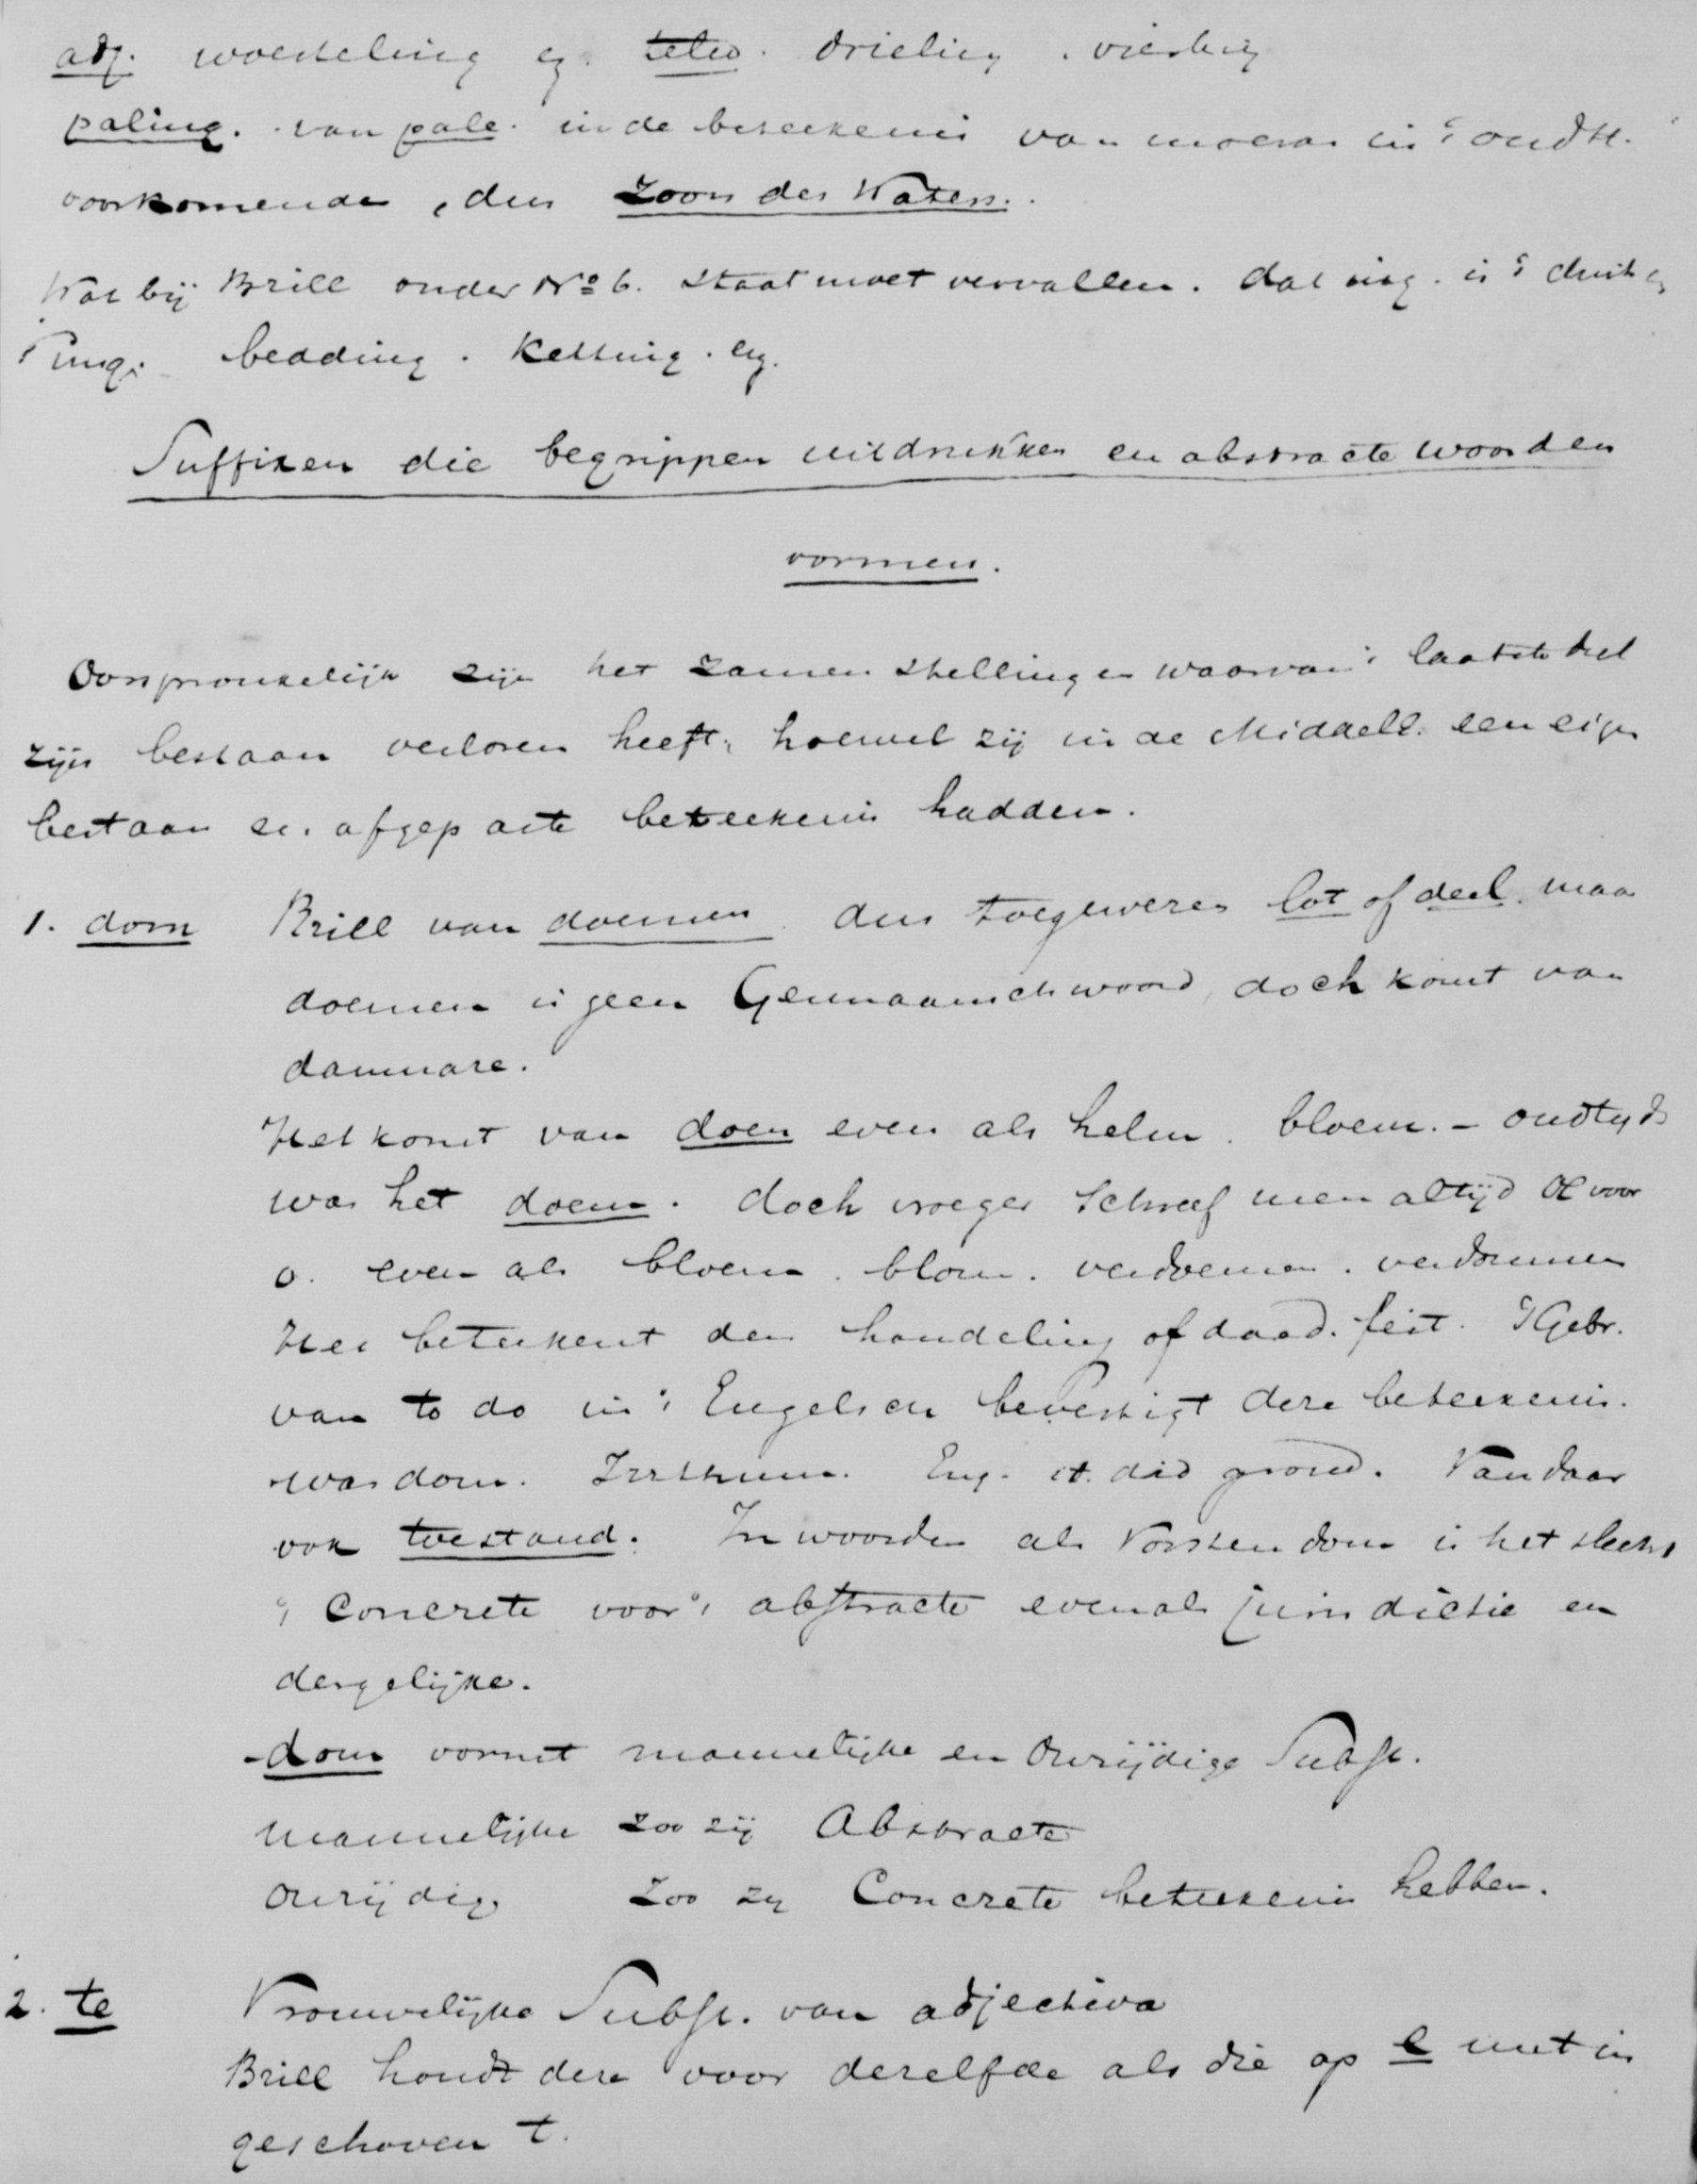 adj. woesteling en telw. drieling . vierling
paling. van pale. in de beteekenis van moeras in 't oudtt.
voorkomende, dus Zoon des Waters.
Wat bij Brill onder No 6. staat moet vervallen. dat ing. is 't duitsch
ung. bedding. Ketting. enz.
Suffixen die begrippen uitdrukken en abstracte woorden
vormen.
Oorspronkelijk zijn het zamenstellingen waarvan 't laatste deel
zijn bestaan verloren heeft, hoewel zij in de Middell. een eigen
bestaan en afgeparte beteekenis hadden.
1. dom Brill van doemen. dus toegewezen lot of deel. maar
doemen is geen Germaansch woord, doch komt van
damnare.
Het komt van doen even als helm. bloem. - oudtyds
was het doem. doch vroeger schreef men altijd oe voor
o. even als bloem. blom. verdoemen. verdommen
Het beteekent dus handeling of daad. feit. 't Gebr.
van to do in 't Engelsch bevestigt deze beteekenis.
wasdom. Irrthum. Eng. it did grow. Van daar
ook toestand. In woorden als Vorstendom is het slechts
't Concrete voor 't abstracte evenals jurisdictie en
dergelijke.
-dom vormt mannelijke en Onzijdige Subst.
mannelijke zoo zij Abstracte
Onzijdige zoo zy Concrete beteekenis hebben.
2. te Vrouwelijke Subst. van adjectiva
Brill houdt deze voor dezelfde als die op e met in
geschoven t.